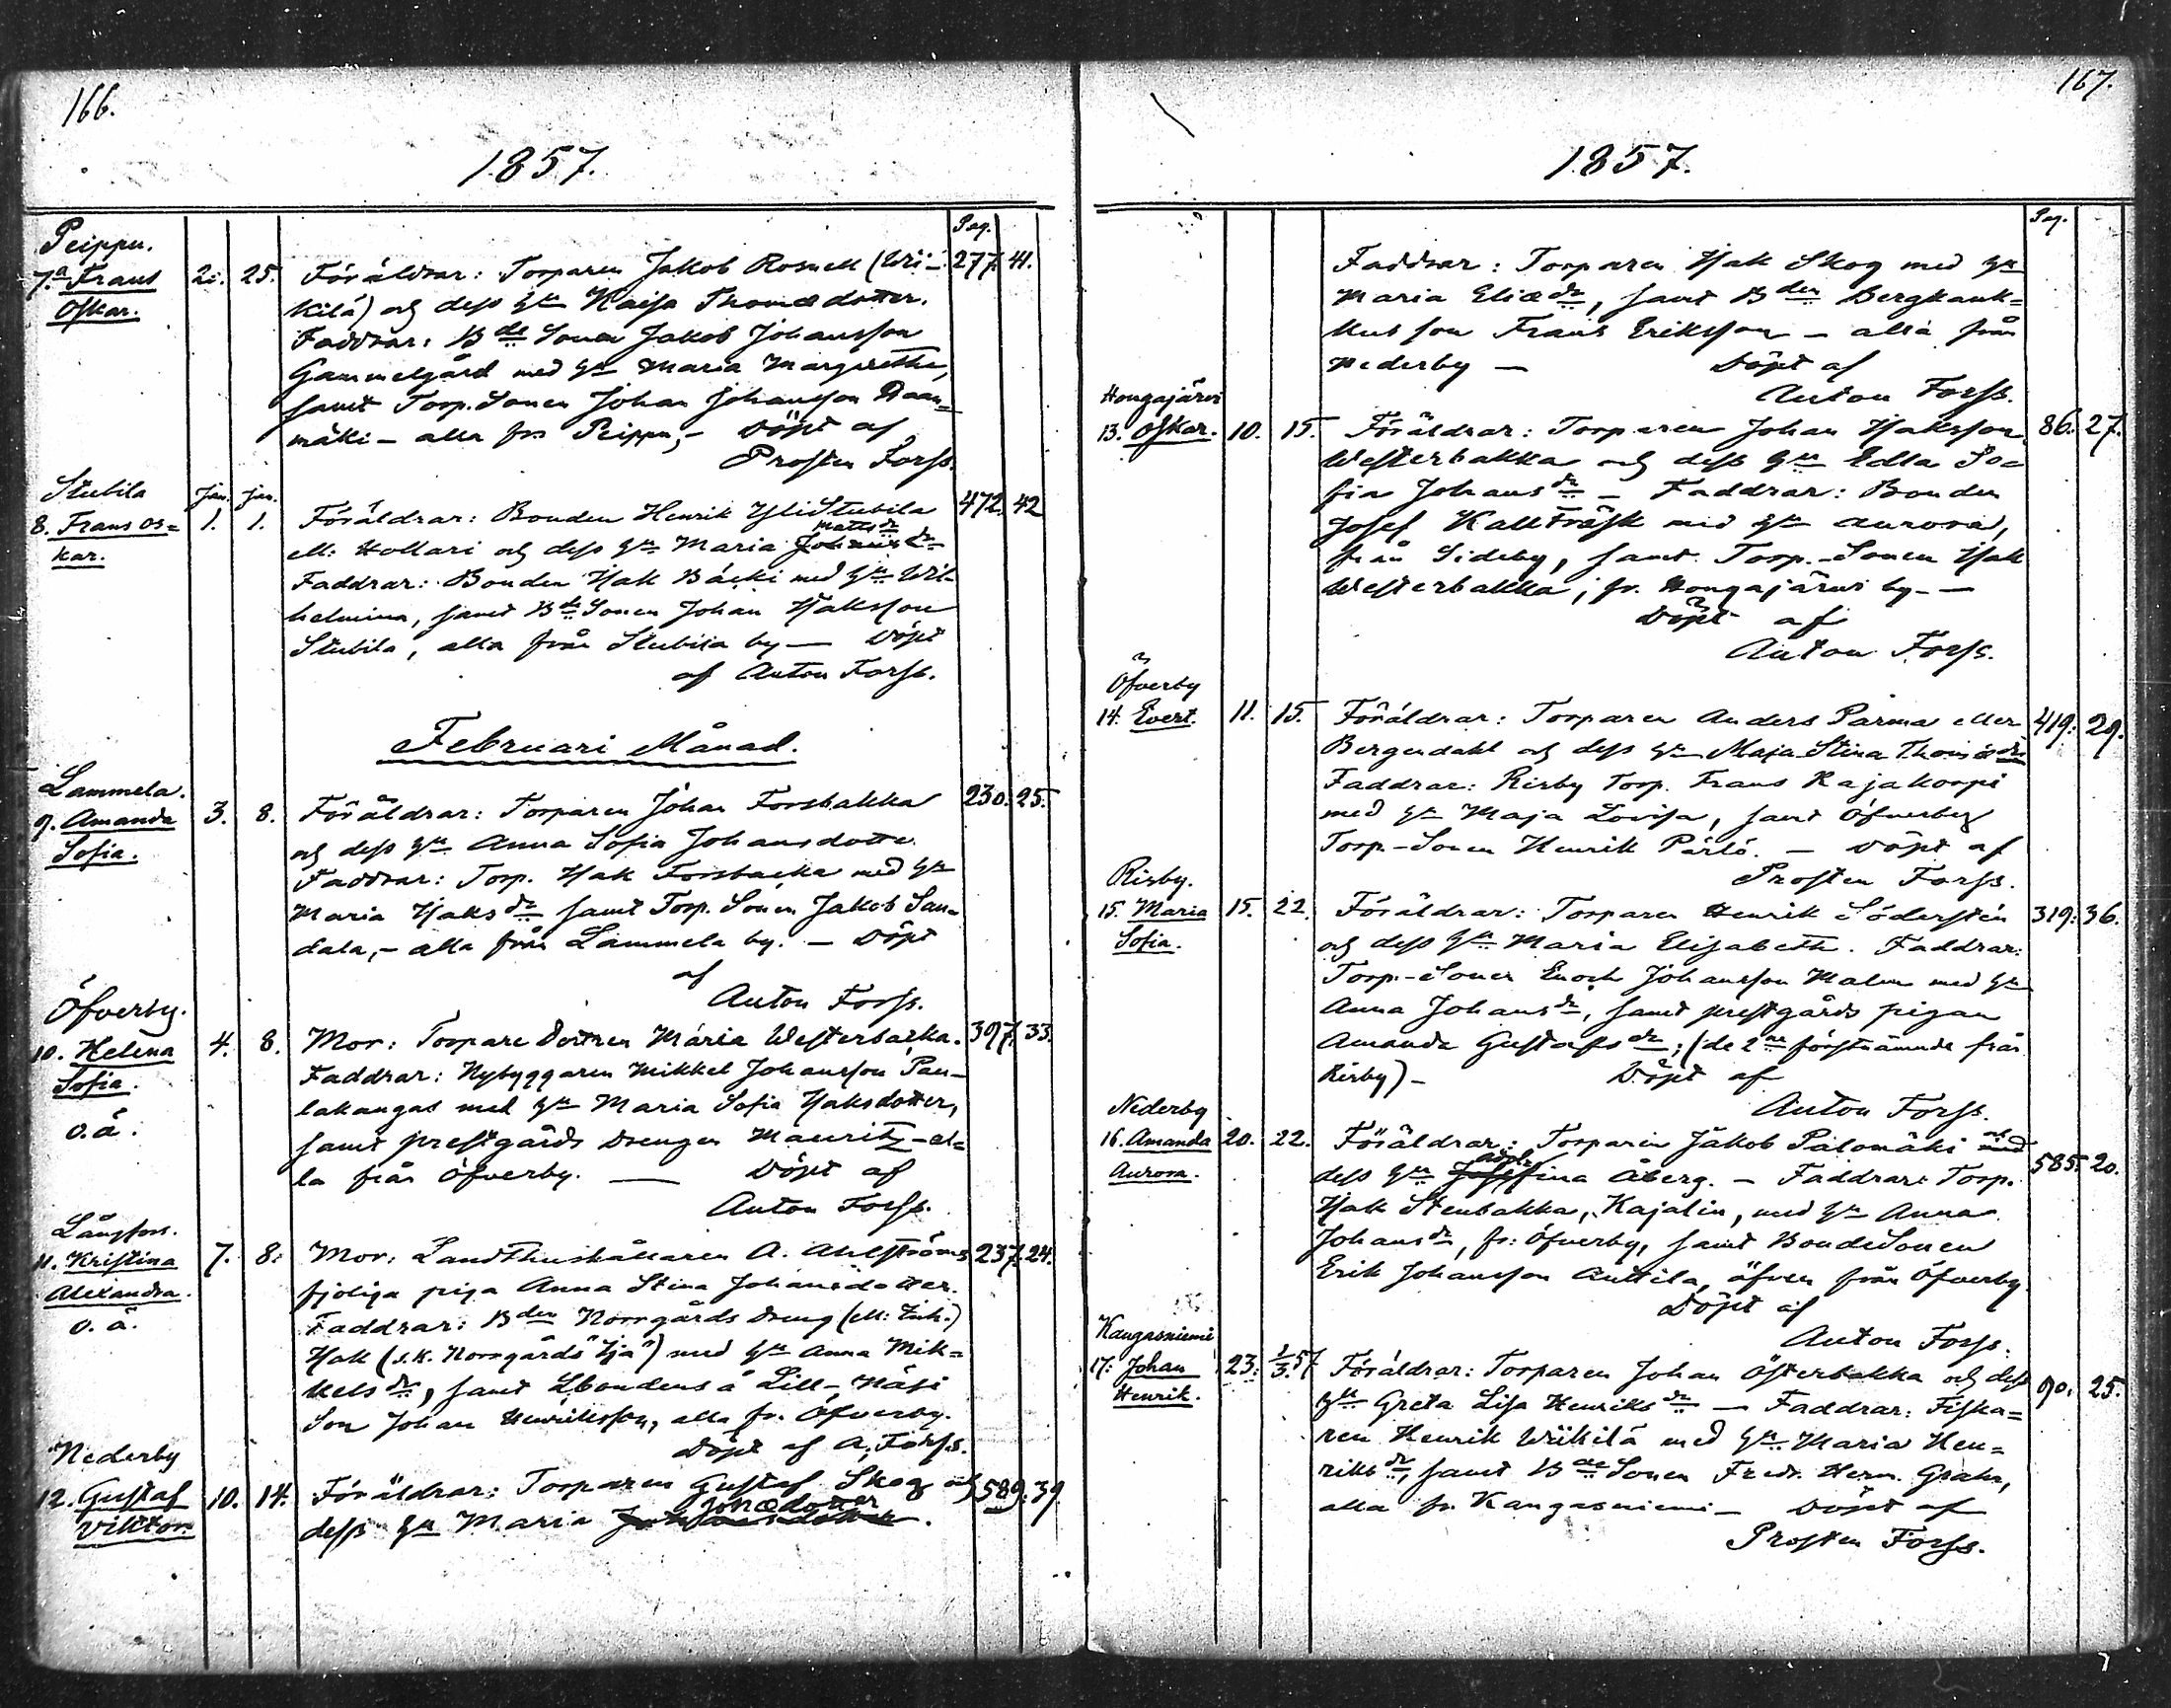 166.
1857.
Pag.
Peippu.
7.a Frans 2. 25. Föräldrar: Torparen Jakob Rosnell (Wri- 277. 41.
Oskar. kilä) och dess hu Kaisa Thomædotter.
Faddrar: Bde Sonen Jakob Johansson
Gammelgård med hu Maria Margretha,
samt Torp. Sonen Johan Johansson Haan-
mäki – alla fr. Peippu, – Döpt af
Prosten Forss.
Stubila Jan. Jan.
8. Frans Os= 1. 1. Föräldrar: Bonden Henrik YliStubila 472. 42
kar. ell: Hollari och dess hu Maria Johans dr Matts dr
Faddrar: Bonden Isak Bäcki med hu Wil-
helmina, samt Bde Sonen Johan Isaksson
Stubila, alla från Stubila by — Döpt
af Anton Forss.
Februari Månad.
Lammela.
9. Amanda 3. 8. Föräldrar: Torparen Johan Forsbakka 230. 25.
Sofia. och dess hu Anna Sofia Johansdotter.
Faddrar: Torp. Isak Forsbacka med hu
Maria Isaks dr samt Torp. Sonen Jakob San-
dala, – alla från Lammela by. – Döpt
af
Anton Forss.
Öfverby.
10. Helena 4. 8. Mor: Torpare dottren Maria Westerbacka. 397. 33.
Sofia. Faddrar: Nybyggaren Mikkel Johansson Pau-
o.ä. lakangas med hu Maria Sofia Isaksdotter,
samt prestgårds drengen Mauritz – al=
la från Öfverby. — Döpt af
Anton Forss.
Långfors.
11. Kristina 7. 8. Mor: Landthushållaren A. Ahlströms 237. 24.
Alexandra. fjoliga piga Anna Stina Johansdotter.
o. ä. Faddrar: Bden Norrgårds dreng (ell: Enk.)
Isak (s.k. Norrgårds "Ija") med hu Anna Mik=
kels dr, samt Lbondens å Lill-Näsi
Son Johan Henriksson, alla fr. Öfverby.
Döpt af A. Forss.
Nederby
12. Gustaf 10. 14. Föräldrar: Torparen Gustaf Skog och 589. 39.
Viktor. dess hu Maria Johansdotter Jonædotter.
167.
1857.
Pag.
Faddrar: Torparen Isak Skog med hu
Maria Eliædr, samt Bden Bergkank=
kus son Frans Eriksson – alla från
Nederby — Döpt af
Anton Forss.
Hongajärvi
13. Oskar. 10. 15. Föräldrar: Torparen Johan Isaksson 86. 27.
Westerbakka och dess hu Edla So=
fia Johans dr – Faddrar: Bonden
Josef Kallträsk med hu Aurora,
från Sideby, samt Torp.-Sonen Isak
Westerbakka; fr. Hongajärvi by. —
Döpt af
Anton Forss.
Öfverby
14. Evert. 11. 15. Föräldrar: Torparen Anders Parma eller 419. 29.
Bergendahl och dess hu Maja Stina Thomas dr
Faddrar: Risby Torp. Frans Rajakorpi
med hu Maja Lovisa, samt Öfverby
Torp-Sonen Henrik Pärlö. – Döpt af
Prosten Forss.
Risby.
15. Maria 15. 22. Föräldrar: Torparen Henrik Söderstén 319. 36.
Sofia. och dess hu Maria Elisabeth. Faddrar:
Torp-Sonen Enoch Johansson Malm med hu
Anna Johans dr, samt prestgårds pigan
Amanda Gustafs dr; (de 2ne förstnämnde från
Risby) – Döpt af
Anton Forss.
Nederby
16. Amanda 20. 22. Föräldrar: Torparen Jakob Palomäki med och 585. 20.
Aurora. dess hu Josefina Adol Åberg. – Faddrar: Torp.
Isak Stenbakka, Kajalin, med hu Anna
Johans dr, fr: Öfverby, samt BondeSonen
Erik Johansson Anttila, äfven från Öfverby
Döpt af
Anton Forss.
Kangasniemi
17. Johan 23. 1/3 57 Föräldrar: Torparen Johan Österbakka och dess 90. 25.
Henrik. hu Greta Lisa Henriks dr — Faddrar: Fiska=
ren Henrik Wiikilä med hu Maria Hen=
riks dr, samt Bde Sonen Fredr. Herm. Grahn,
alla fr. Kangasniemi – Döpt af
Prosten Forss.